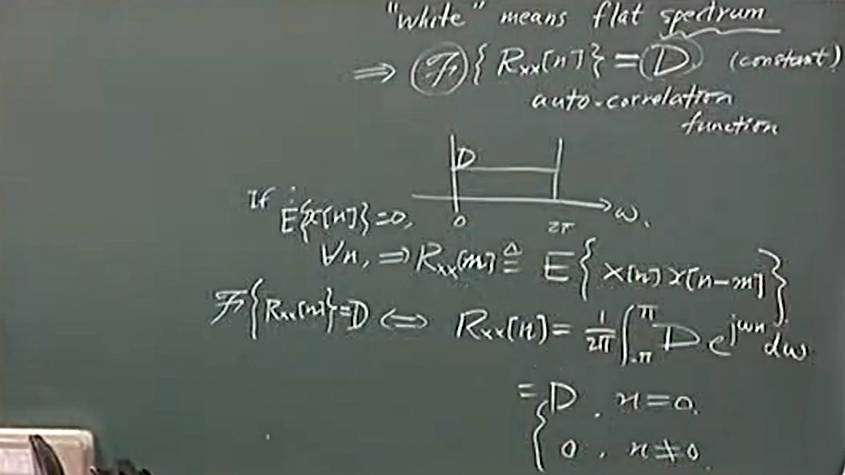 "White" means flat spectrum
⇒ ℱ{ Rxx[n] } = D (constant)
auto-correlation
function
D
0 2π ω.
If E{x[n]}=0,
∀n, ⇒ Rxx[m] ≜ E{ x[n] x[n-m] }
ℱ{Rxx[n]}=D ⇔ Rxx[n] = 1/2π ∫_{-π}^{π} D e^{jωn} dω
= { D, n=0.
0, n≠0